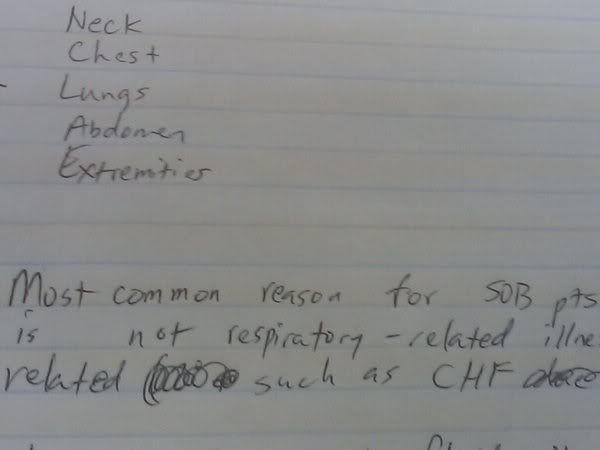 Neck
Chest
Lungs
Abdomen
Extremities
Most common reason for SOB pts
is not respiratory-related illne
related such as CHF